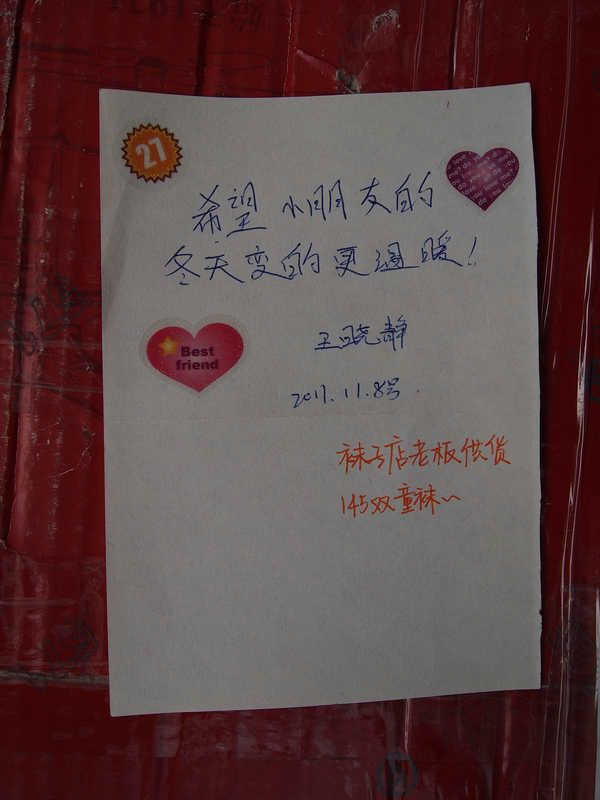 27
希望小朋友的
冬天变的更温暖!
王晓静
Best
friend
2017.11.8号.
袜子店老板供货
145双童袜~